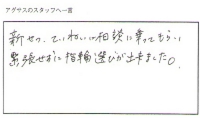 アグサスのスタッフへ一言
親せつ、ていねいに相談に乗ってもらい
緊張せずに指輪選びが出来ました。